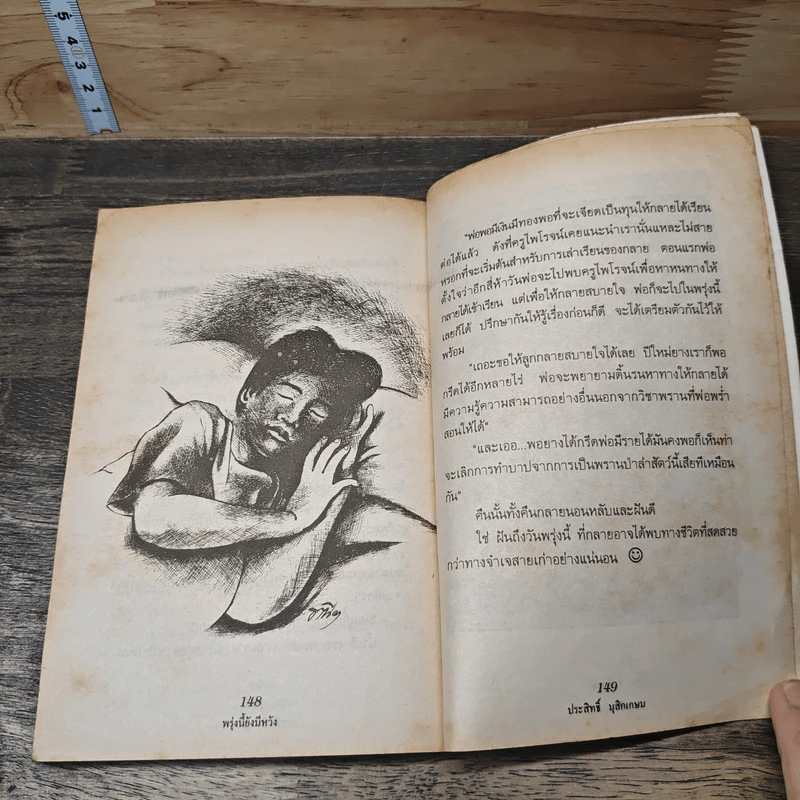 5
4
3
2
1
148
พรุ่งนี้ยังมีหวัง
"พ่อพอมีเงินมีทองพอที่จะเจียดเป็นทุนให้กลายได้เรียน
ต่อได้แล้ว ดังที่ครูไพโรจน์เคยแนะนำเรานั่นแหละไม่สาย
หรอกที่จะเริ่มต้นสำหรับการเล่าเรียนของกลาย ตอนแรกพ่อ
ตั้งใจว่าอีกสี่ห้าวันพ่อจะไปพบครูไพโรจน์เพื่อหาหนทางให้
กลายได้เข้าเรียน แต่เพื่อให้กลายสบายใจ พ่อก็จะไปในพรุ่งนี้
เลยก็ได้ ปรึกษากันให้รู้เรื่องก่อนก็ดี จะได้เตรียมตัวกันไว้ให้
พร้อม
"เถอะขอให้ลูกกลายสบายใจได้เลย ปีใหม่ยางเราก็พอ
กรีดได้อีกหลายไร่ พ่อจะพยายามดิ้นรนหาทางให้กลายได้
มีความรู้ความสามารถอย่างอื่นนอกจากวิชาพรานที่พ่อพร่ำ
สอนให้ได้"
"และเออ...พอยางได้กรีดพ่อมีรายได้มั่นคงพอก็เห็นท่า
จะเลิกการทำบาปจากการเป็นพรานป่าล่าสัตว์นี้เสียทีเหมือน
กัน"
คืนนั้นทั้งคืนกลายนอนหลับและฝันดี
ใช่ ฝันถึงวันพรุ่งนี้ ที่กลายอาจได้พบทางชีวิตที่สดสวย
กว่าทางจำเจสายเก่าอย่างแน่นอน
149
ประสิทธิ์ มุสิกเกษม